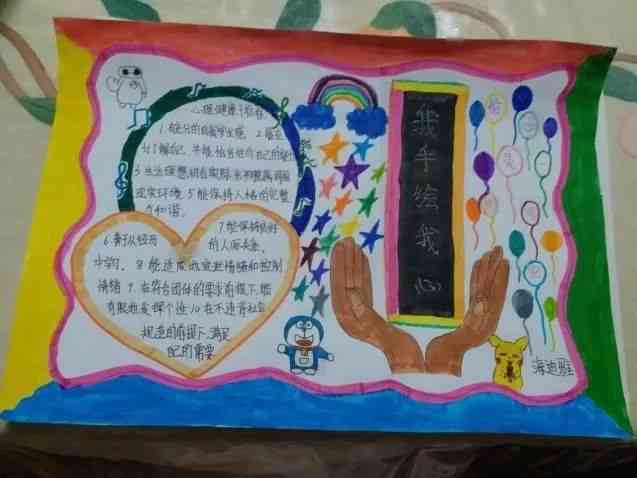 心理健康手抄报
1.有充分的自我安全感. 2.能充
分了解自己,并能恰当估价自己的能力
3.生活理想切合实际.4.不脱离周围
现实环境.5.能保持人格的完整
与和谐.
6.善于从经验
中学习.
7.能保持良好
的人际关系.
8.能适度地宣泄情绪和控制
情绪 9.在符合团体的要求前提下,能
有限地发挥个性 10.在不违背社会
规范的前提下,满足
的需要
我手绘我心
海迪雅